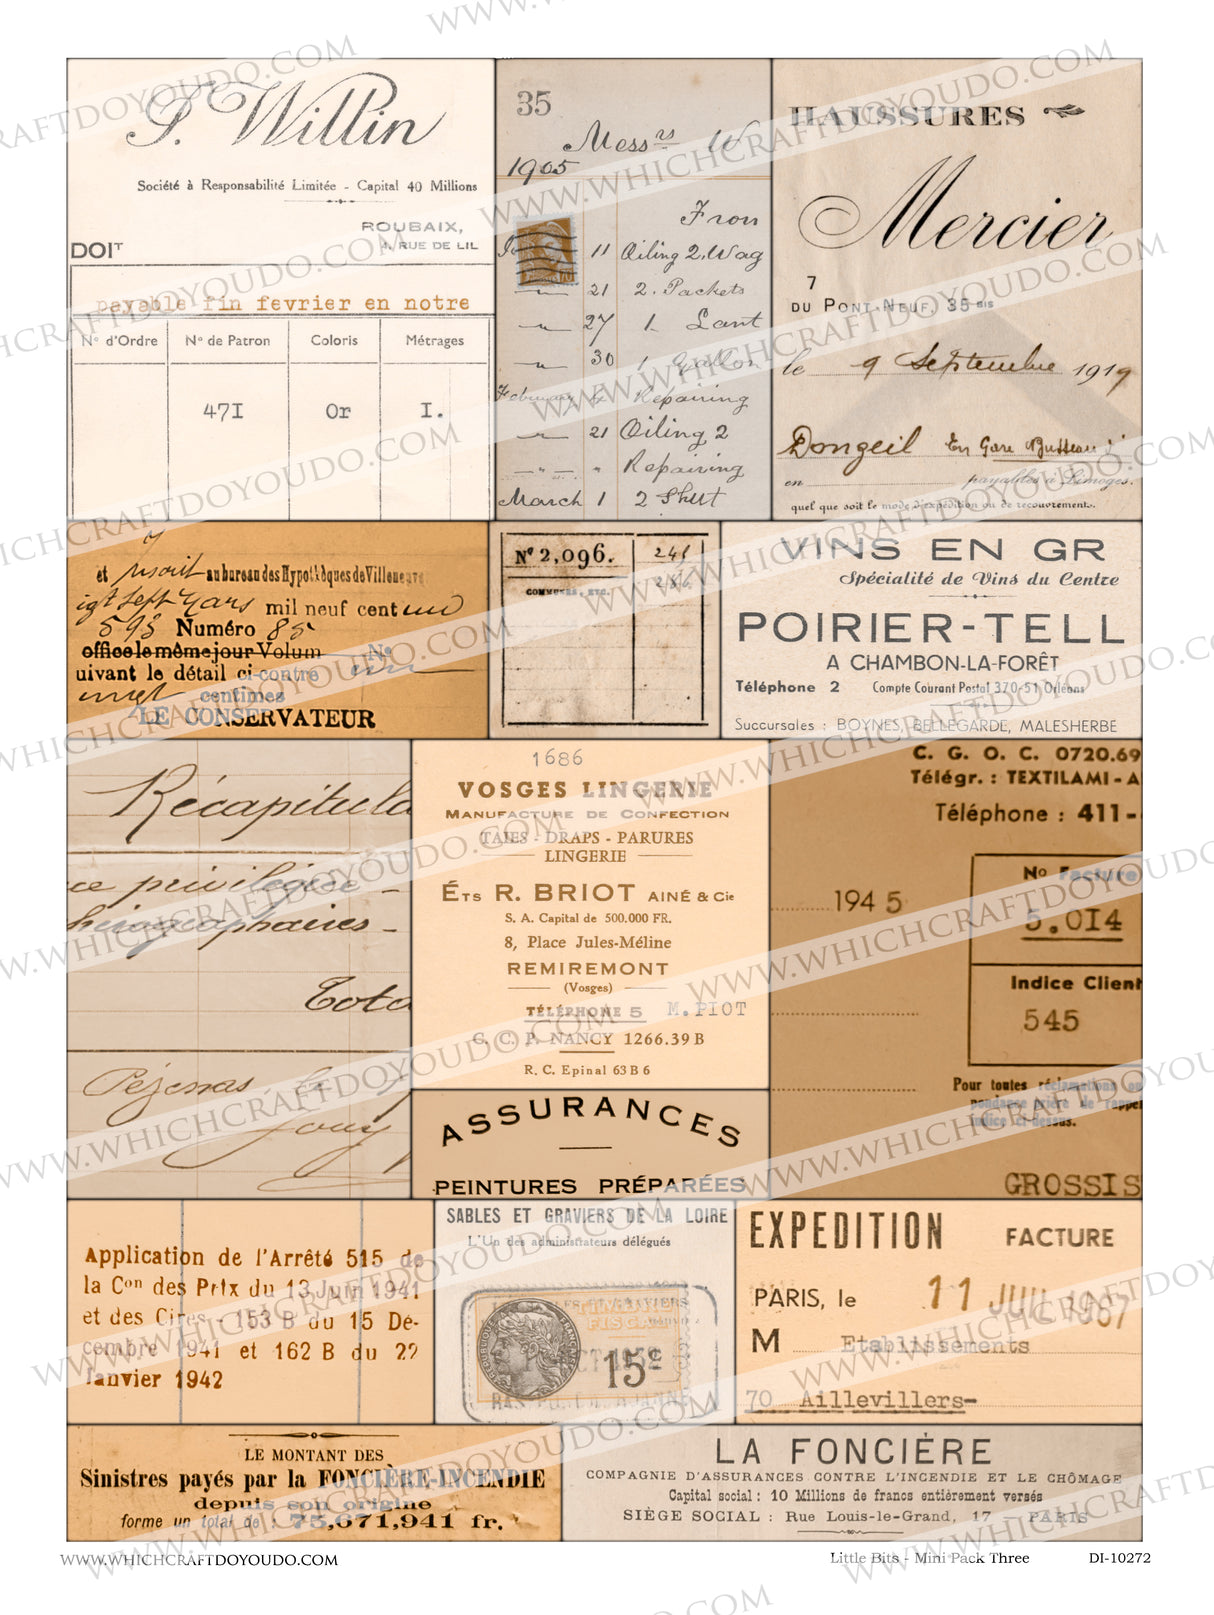 S. Willin
Société à Responsabilité Limitée - Capital 40 Millions
ROUBAIX,
4, RUE DE LIL
DOIT
payable fin fevrier en notre
N° d'Ordre N° de Patron Coloris Métrages
471 Or I.
35
Messrs W
1905
Fron
11 Oiling 2. Wag
21 2. Packets
27 1 Lant
30 1 Gallon
February Repairing
21 Oiling 2
Repairing
March 1 2 Shut
HAUSSURES
Mercier
7
DU PONT-NEUF, 35 BIS
le 9 Septembre 1919
Dongeil En Gare Busseau
en payables à Limoges.
quel que soit le mode d'expédition ou de recouvrement.
et inscrit au bureau des Hypothèques de Villeneuve
igt Sept Mars mil neuf cent un
593 Numéro 85
office le même jour Volum N°
uivant le détail ci-contre
centimes
LE CONSERVATEUR
N° 2,096. 246
COMMUNES, ETC. 286
VINS EN GR
Spécialité de Vins du Centre
POIRIER-TELL
A CHAMBON-LA-FORÊT
Téléphone 2 Compte Courant Postal 370-51 Orléans
Succursales : BOYNES, BELLEGARDE, MALESHERBE
Récapitula
ce privilégiée -
hirographaires -
Tota
Pézenas le
1686
VOSGES LINGERIE
MANUFACTURE DE CONFECTION
TAIES - DRAPS - PARURES
LINGERIE
ÉTS R. BRIOT AINÉ & Cie
S. A. Capital de 500.000 FR.
8, Place Jules-Méline
REMIREMONT
(Vosges)
TÉLÉPHONE 5 M. PIOT
C. C. P. NANCY 1266.39 B
R. C. Epinal 63 B 6
C. G. O. C. 0720.69
Télégr. : TEXTILAMI - A
Téléphone : 411-
194 5
No Facture
5.014
Indice Client
545
Pour toutes réclamations ou
pondance prière de rappel
indice ci-dessus.
GROSSIS
ASSURANCES
PEINTURES PRÉPARÉES
Application de l'Arrêté 515 de
la Con des Prix du 13 Juin 1941
et des Cires - 153 B du 15 Dé-
cembre 1941 et 162 B du 22
Janvier 1942
SABLES ET GRAVIERS DE LA LOIRE
L'Un des administrateurs délégués
REPUBLIQUE FRANÇAISE
TIMBRE
FISCAL
15c
EXPEDITION FACTURE
PARIS, le 11 JUIL 1967
M Etablissements
70 Aillevillers-
LE MONTANT DES
Sinistres payés par la FONCIÈRE-INCENDIE
depuis son origine
forme un total de : 75,671,941 fr.
LA FONCIÈRE
COMPAGNIE D'ASSURANCES CONTRE L'INCENDIE ET LE CHÔMAGE
Capital social : 10 Millions de francs entièrement versés
SIÈGE SOCIAL : Rue Louis-le-Grand, 17 - PARIS
WWW.WHICHCRAFTDOYOUDO.COM
Little Bits - Mini Pack Three DI-10272